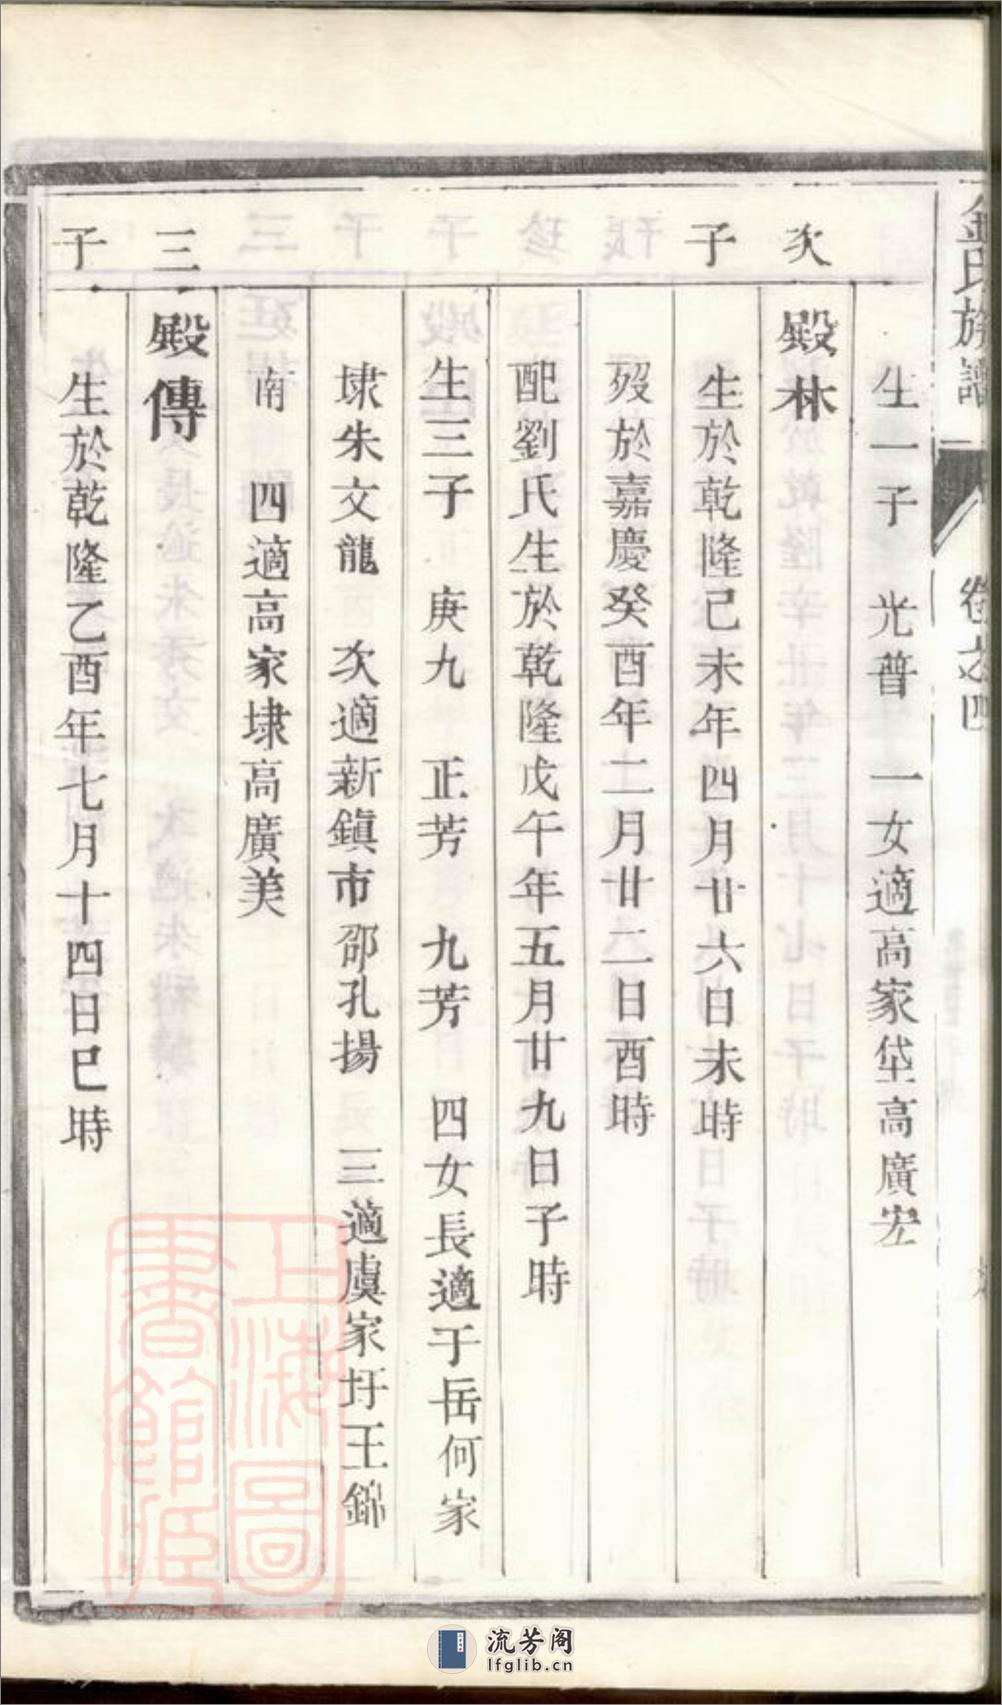 金氏族譜 卷之四
生一子 光普 一女適高家垈高廣宏
次子 殿林
生於乾隆己未年四月廿六日未時
歿於嘉慶癸酉年二月廿二日酉時
配劉氏生於乾隆戊午年五月廿九日子時
生三子 庚九 正芳 九芳 四女長適于岳何家
埭朱文龍 次適新鎮市邵孔揚 三適虞家圩王錦
南 四適高家埭高廣美
三子 殿傳
生於乾隆乙酉年七月十四日巳時
上海圖書館藏
流芳阁
lfglib.cn